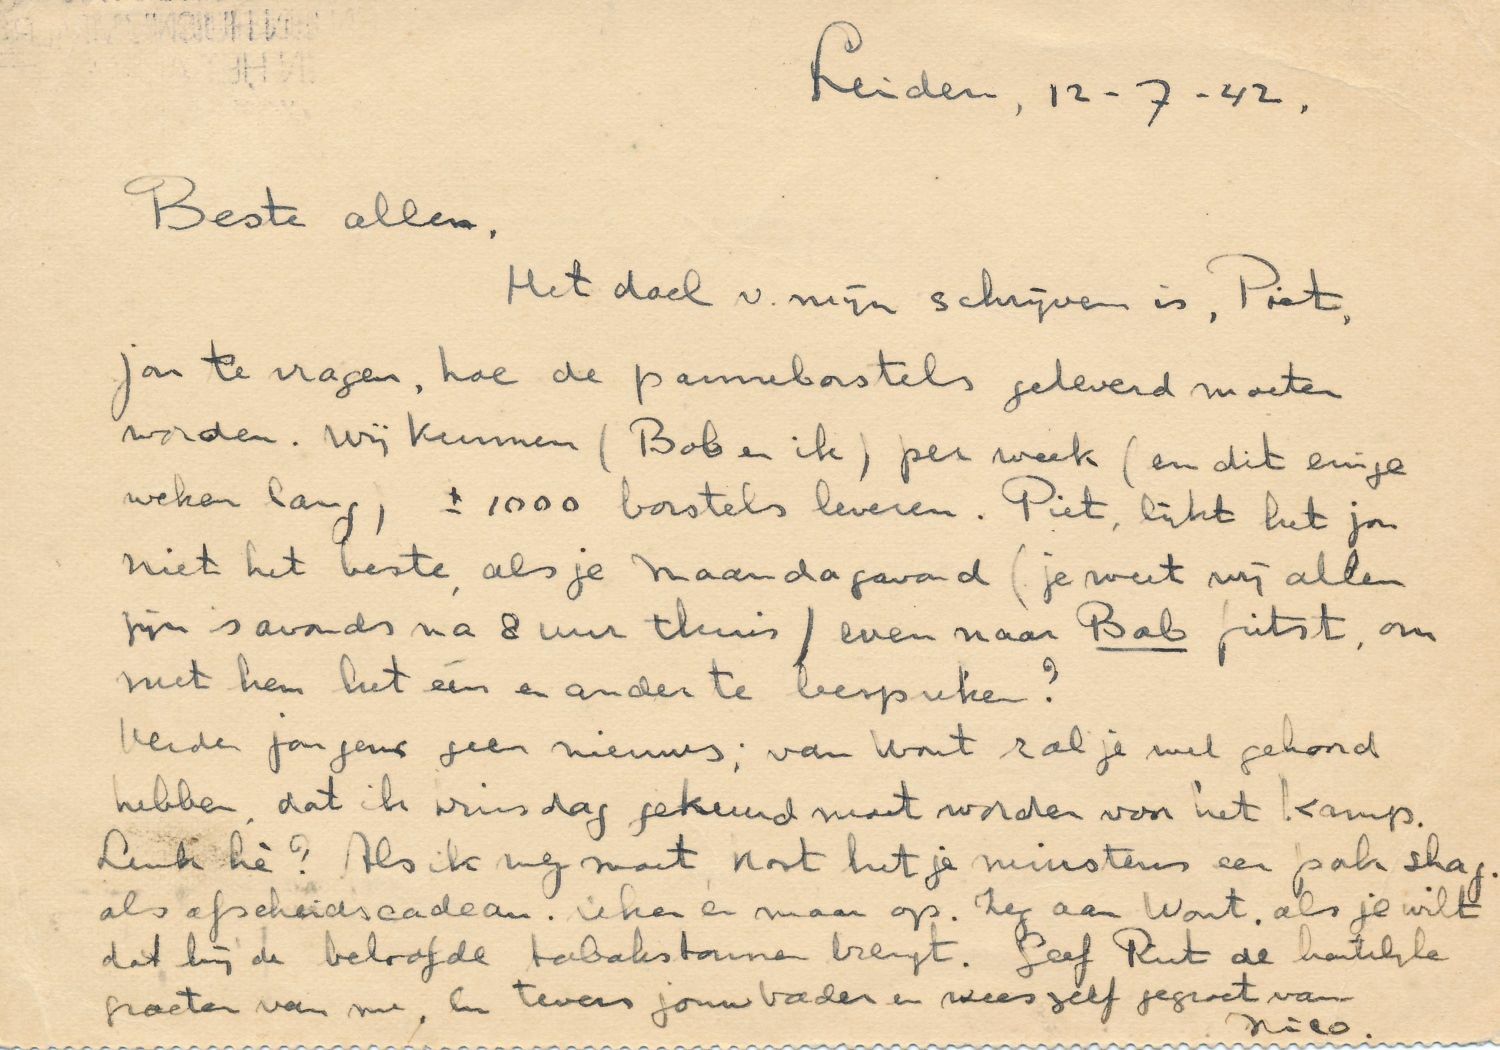 Leiden, 12-7-42.
Beste allen,
Het doel v. mijn schrijven is, Piet,
jou te vragen, hoe de panneborstels geleverd moeten
worden. Wij kunnen (Bob en ik) per week (en dit enige
weken lang) ± 1000 borstels leveren. Piet, lijkt het jou
niet het beste, als je Maandagavond (je weet wij allen
zijn 's avonds na 8 uur thuis) even naar Bob fietst, om
met hem het één en ander te bespreken?
Verder jongens geen nieuws; van Wout zal je wel gehoord
hebben, dat ik dinsdag gekeurd moet worden voor het kamp.
Leuk hè? Als ik weg moet, kost het je minstens een pak shag.
als afscheidscadeau. reken er maar op. Zeg aan Wout, als je wilt
dat hij de beloofde tabakstonnen brengt. Geef Riet de hartelijke
groeten van me, en tevens jouw vader en wees zelf gegroet van
Nico.